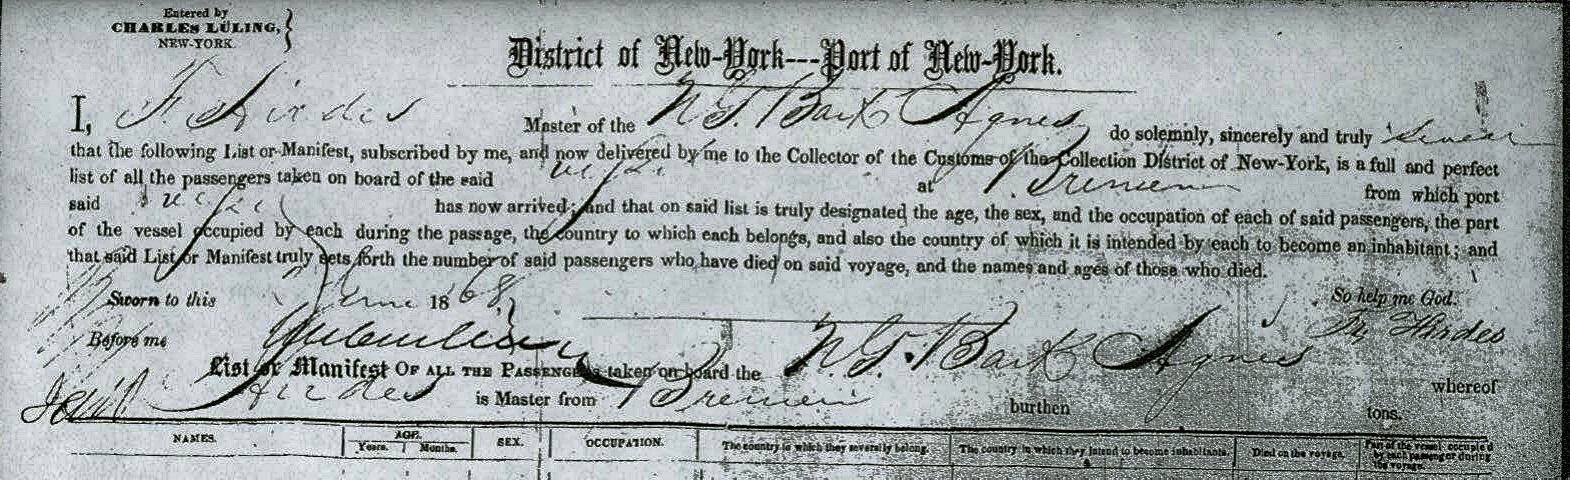 Entered by
CHARLES LÜLING,
NEW-YORK.
District of New-York---Port of New-York.
I, F. Hirdes Master of the N. G. Bark Agnes do solemnly, sincerely and truly swear
that the following List or Manifest, subscribed by me, and now delivered by me to the Collector of the Customs of the Collection District of New-York, is a full and perfect
list of all the passengers taken on board of the said at Bremen from which port
said has now arrived; and that on said list is truly designated the age, the sex, and the occupation of each of said passengers, the part
of the vessel occupied by each during the passage, the country to which each belongs, and also the country of which it is intended by each to become an inhabitant; and
that said List or Manifest truly sets forth the number of said passengers who have died on said voyage, and the names and ages of those who died.
Sworn to this June 1868 So help me God.
Before me Hirdes
List or Manifest OF ALL THE PASSENGERS taken on board the N. G. Bark Agnes whereof
Hirdes is Master from Bremen burthen tons.
NAMES. AGE. Years. Months. SEX. OCCUPATION. The country to which they severally belong. The country in which they intend to become inhabitants. Died on the voyage. Part of the vessel occupied by each passenger during the voyage.